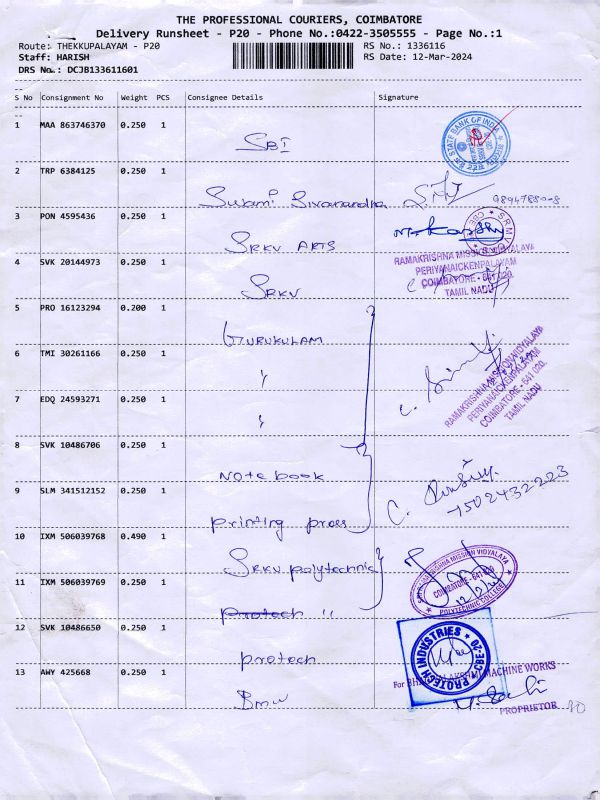 THE PROFESSIONAL COURIERS, COIMBATORE
Delivery Runsheet - P20 - Phone No.:0422-3505555 - Page No.:1
Route: THEKKUPALAYAM - P20 RS No.: 1336116
Staff: HARISH RS Date: 12-Mar-2024
DRS No.: DCJB133611601
S No Consignment No Weight PCS Consignee Details Signature
1 MAA 863746370 0.250 1 SBI
STATE BANK OF INDIA
2 TRP 6384125 0.250 1 Swami Sivanandha
3 PON 4595436 0.250 1 SRKV ARTS
RAMAKRISHNA MISSION VIDYALAYA
PERIYANAICKENPALAYAM
COIMBATORE - 641 020.
TAMIL NADU
4 SVK 20144973 0.250 1 SRKV
5 PRO 16123294 0.200 1 GURUKULAM
6 TMI 30261166 0.250 1 "
RAMAKRISHNA MISSION VIDYALAYA
PERIYANAICKENPALAYAM
COIMBATORE - 641 020.
TAMIL NADU
7 EDQ 24593271 0.250 1 "
8 SVK 10486706 0.250 1 Note book
9 SLM 341512152 0.250 1 printing press
10 IXM 506039768 0.490 1 SRKV polytechnic
MISSION VIDYALAYA
COIMBATORE - 641 020
POLYTECHNIC COLLEGE
11 IXM 506039769 0.250 1 protech "
12 SVK 10486650 0.250 1 protech
PROTECH INDUSTRIES
CBE-20
13 AWY 425668 0.250 1 BMW
MACHINE WORKS
PROPRIETOR